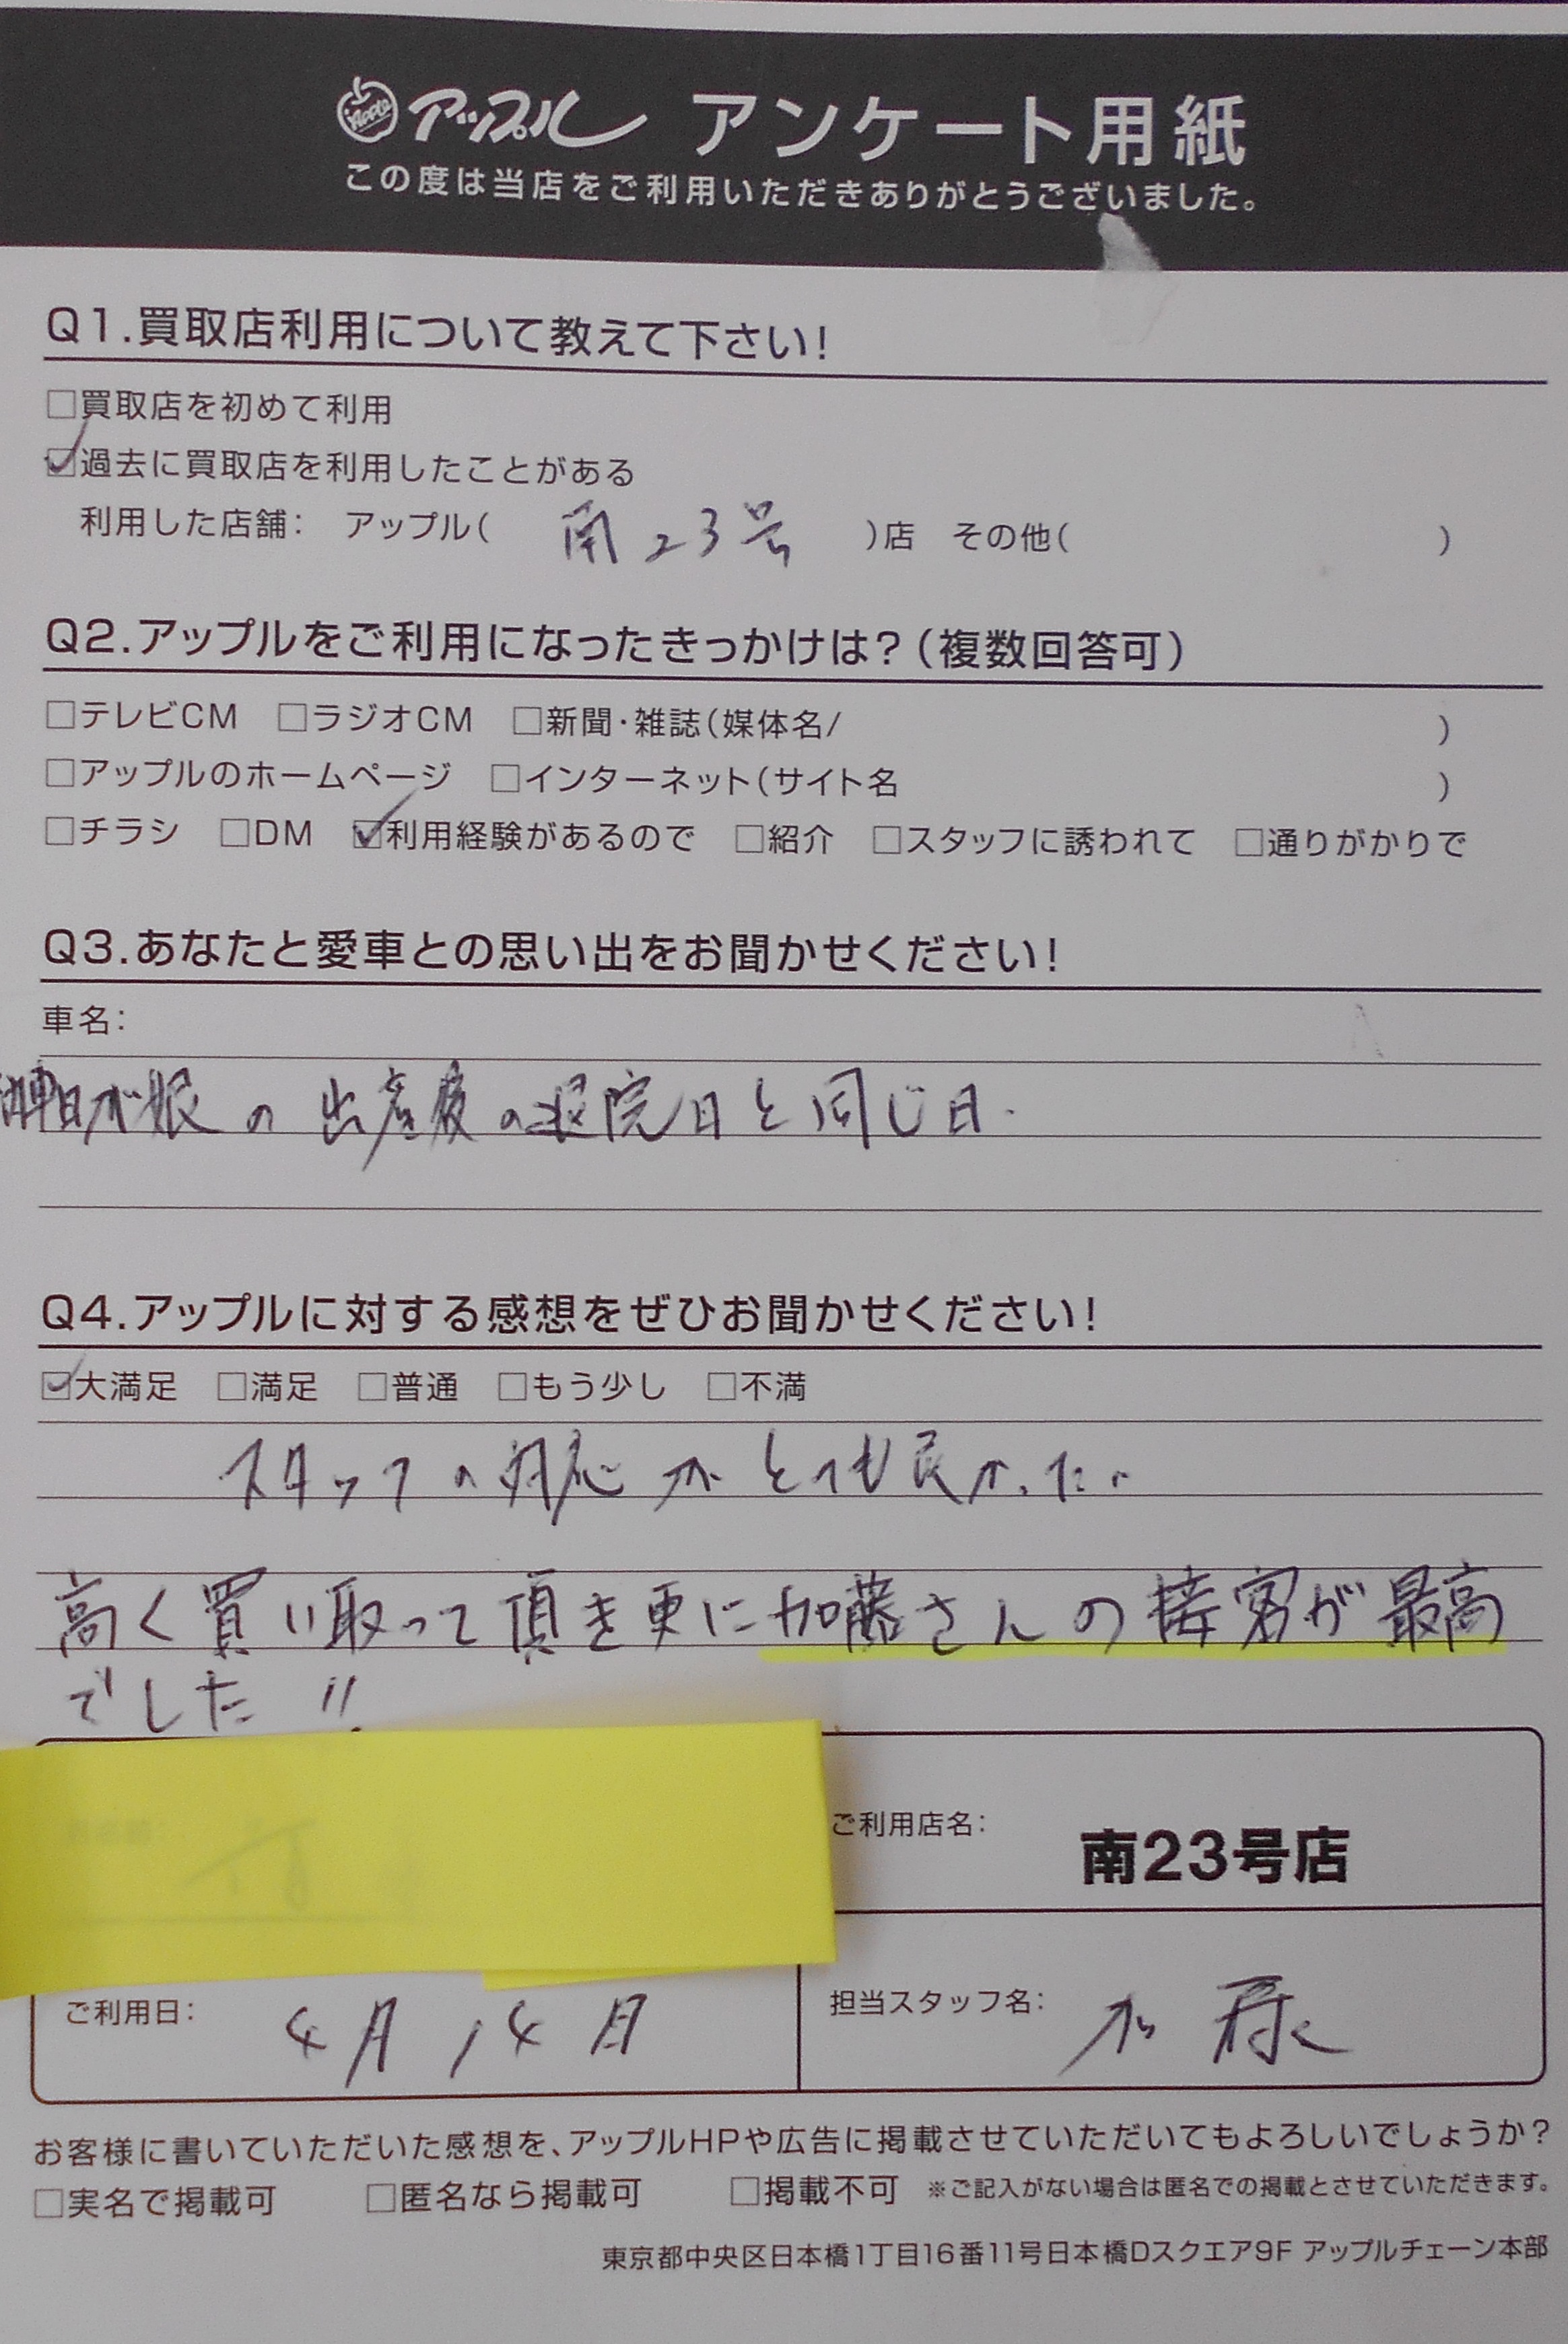 アップル アンケート用紙
この度は当店をご利用いただきありがとうございました。
Q1.買取店利用について教えて下さい!
□買取店を初めて利用
☑過去に買取店を利用したことがある
利用した店舗: アップル( 南23号 )店 その他( )
Q2.アップルをご利用になったきっかけは?(複数回答可)
□テレビCM □ラジオCM □新聞・雑誌(媒体名/ )
□アップルのホームページ □インターネット(サイト名 )
□チラシ □DM ☑利用経験があるので □紹介 □スタッフに誘われて □通りがかりで
Q3.あなたと愛車との思い出をお聞かせください!
車名:
車日が娘の出産後の退院日と同じ日.
Q4.アップルに対する感想をぜひお聞かせください!
☑大満足 □満足 □普通 □もう少し □不満
スタッフの対応がとても良かった。
高く買い取って頂き更に加藤さんの接客が最高
でした!!
ご利用店名: 南23号店
ご利用日: 4月14日
担当スタッフ名: 加藤
お客様に書いていただいた感想を、アップルHPや広告に掲載させていただいてもよろしいでしょうか?
□実名で掲載可 □匿名なら掲載可 □掲載不可 ※ご記入がない場合は匿名での掲載とさせていただきます。
東京都中央区日本橋1丁目16番11号日本橋Dスクエア9F アップルチェーン本部